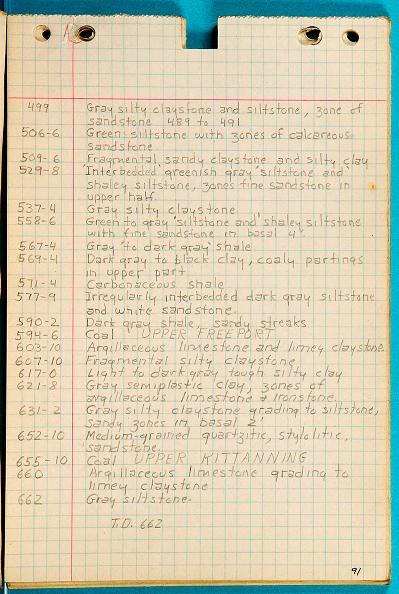 499 Gray silty claystone and siltstone, zone of
sandstone 489 to 491
506-6 Green siltstone with zones of calcareous
sandstone
509-6 Fragmental, sandy claystone and silty clay
529-8 Interbedded greenish gray siltstone and
shaley siltstone, zones fine sandstone in
upper half.
537-4 Gray silty claystone
558-6 Green to gray siltstone and shaley siltstone
with fine sandstone in basal 4'
567-4 Gray to dark gray shale
569-4 Dark gray to black clay, coaly partings
in upper part
571-4 Carbonaceous shale
577-9 Irregularly interbedded dark gray siltstone
and white sandstone.
590-2 Dark gray shale, sandy streaks
594-6 Coal UPPER FREEPORT
603-10 Argillaceous limestone and limey claystone.
607-10 Fragmental silty claystone
617-0 Light to dark gray tough silty clay
621-8 Gray semiplastic clay, zones of
argillaceous limestone & ironstone.
631-2 Gray silty claystone grading to siltstone,
sandy zones in basal 2'
652-10 Medium-grained quartzitic, stylolitic,
sandstone.
655-10 Coal UPPER KITTANNING
660 Argillaceous limestone grading to
limey claystone
662 Gray siltstone.
T.D. 662
91